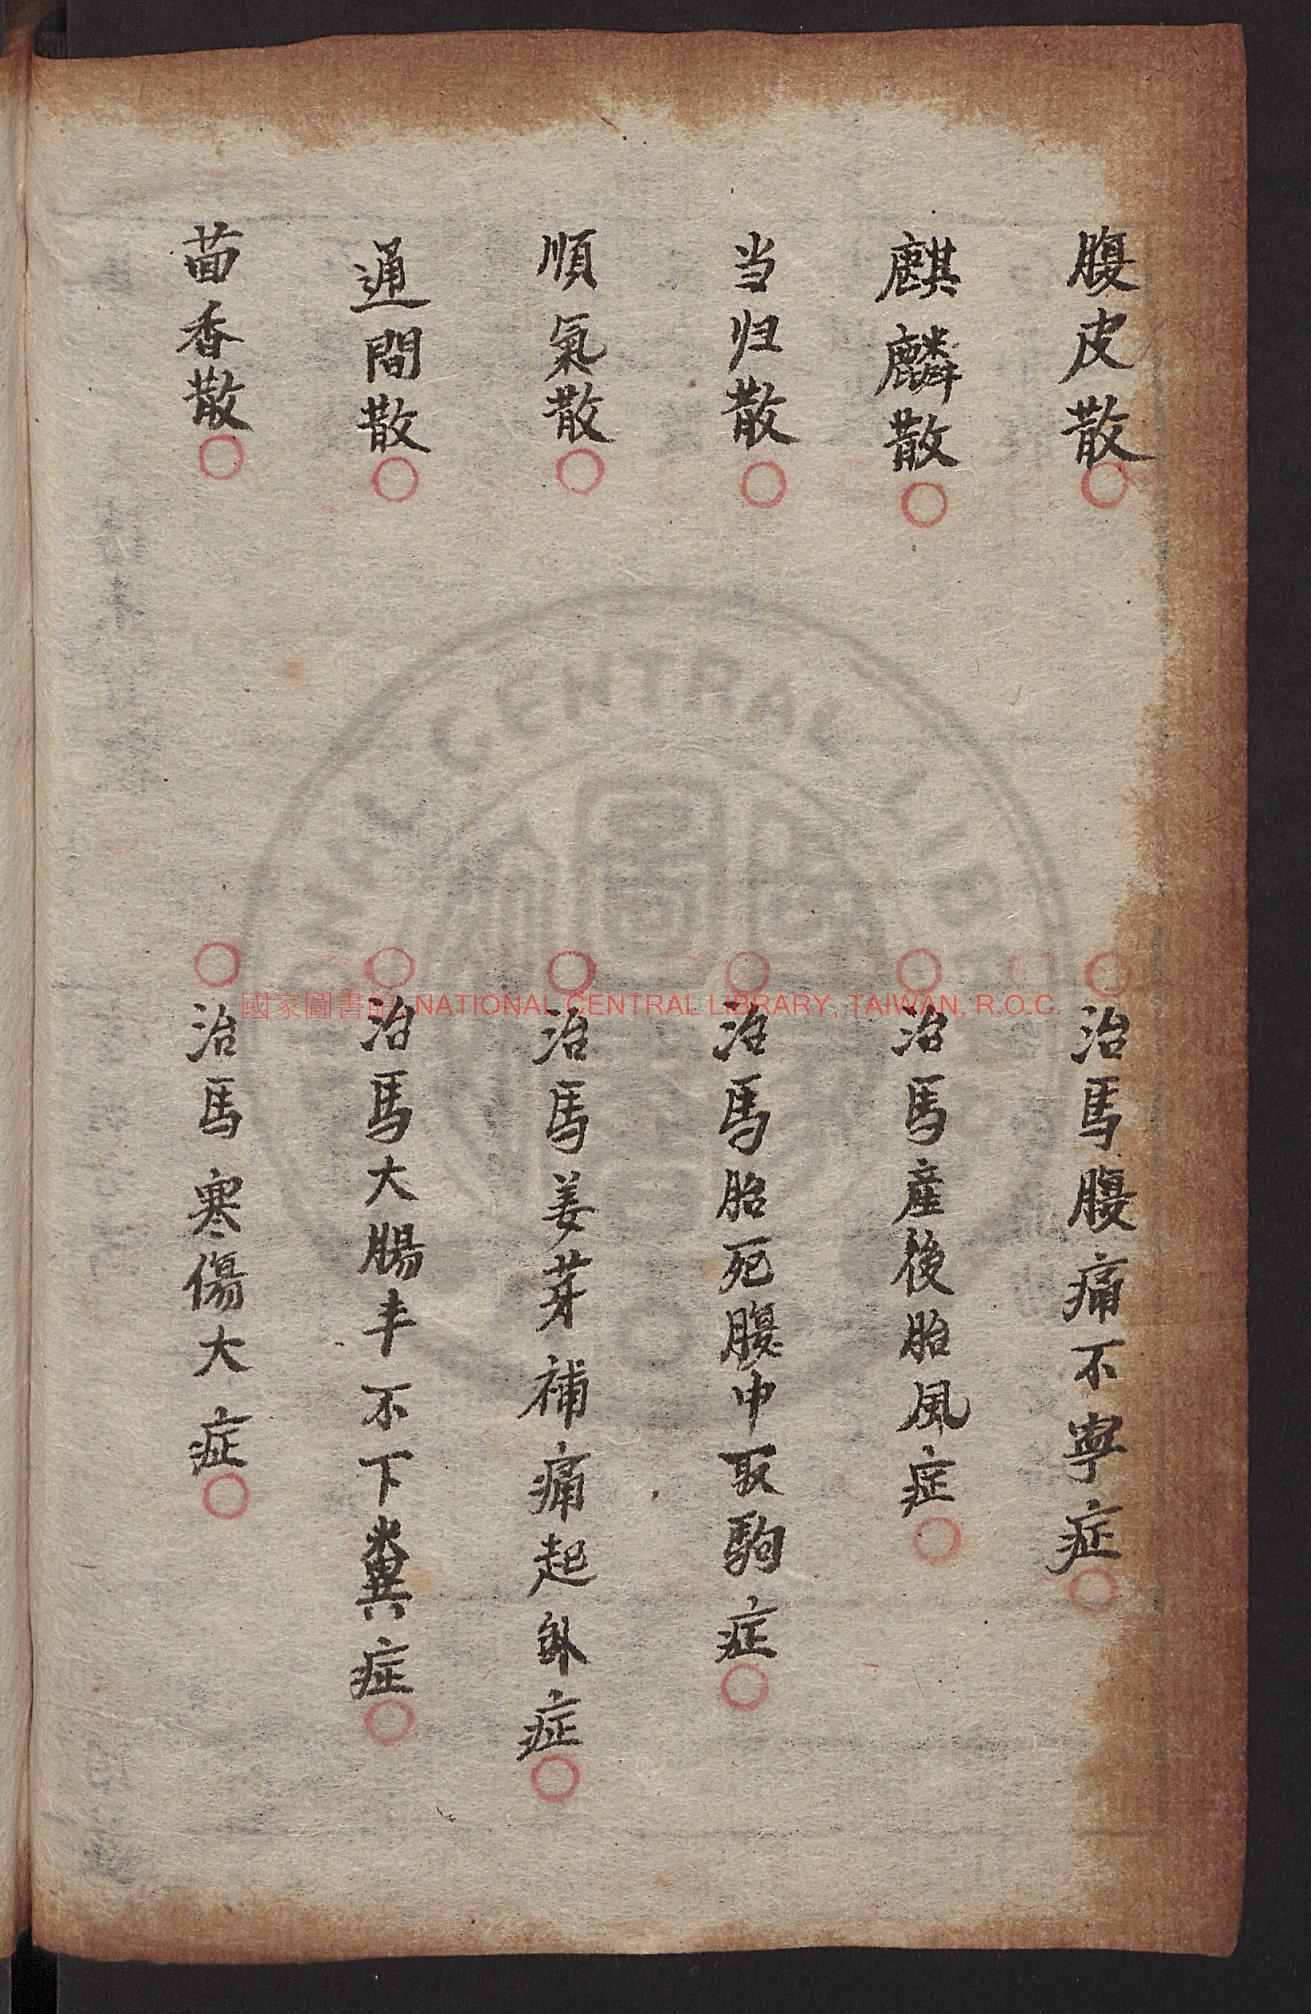 腹皮散○　○治馬腹痛不寧症○
麒麟散○　○治馬產後胎風症○
当归散○　○治馬胎死腹中取駒症○
順氣散○　○治馬姜芽補痛起卧症○
通關散○　○治馬大腸丰不下糞症○
茴香散○　○治馬寒傷大症○
國家圖書館 NATIONAL CENTRAL LIBRARY, TAIWAN, R.O.C.